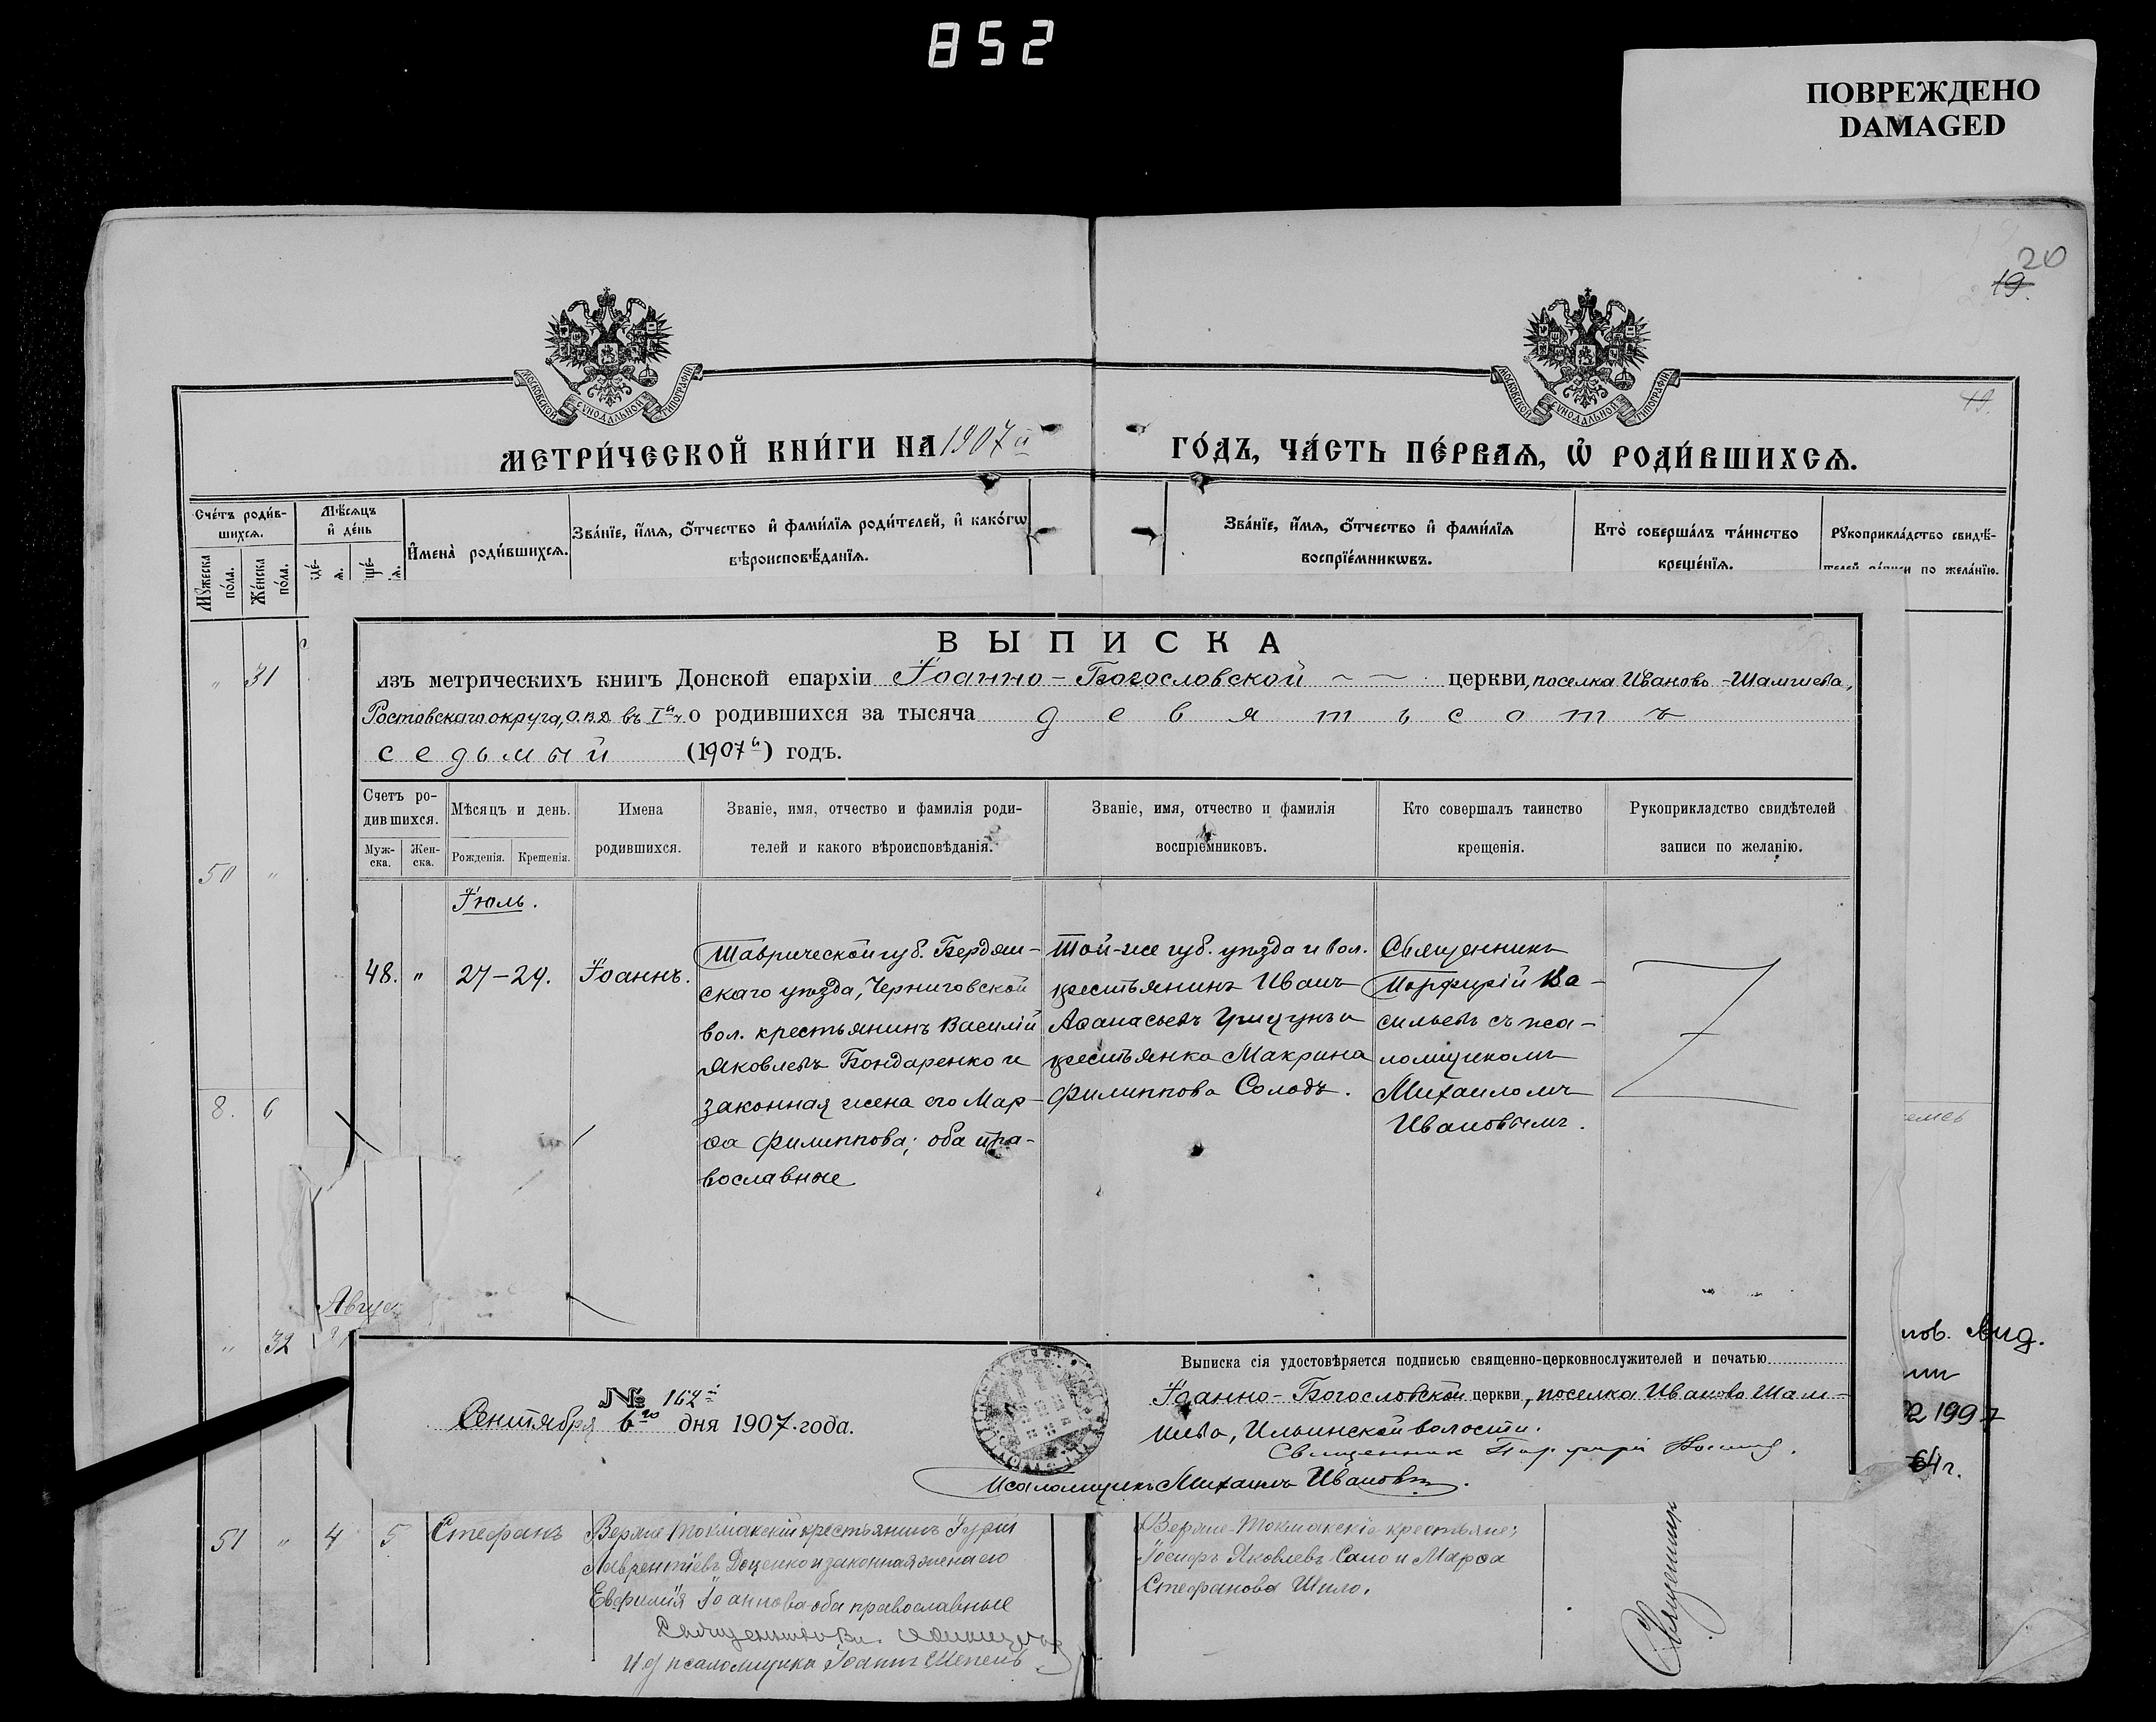 852
ПОВРЕЖДЕНО
DAMAGED
20
19.
19.
МОСКОВСКОЙ СѴНОДАЛЬНОЙ ТИПОГРАФІИ
МОСКОВСКОЙ СѴНОДАЛЬНОЙ ТИПОГРАФІИ
МЕТРИ́ЧЕСКОЙ КНИ́ГИ НА 1907 й ГО́ДЪ, ЧА́СТЬ ПЕ́РВАѦ, Ѡ҆ РОДИ́ВШИХСѦ.
Сче́тъ роди́в-
шихсѧ.
Мꙋ́жеска по́ла.
Же́нска по́ла.
Мѣ́сѧцъ и҆ де́нь
И҆мена̀ роди́вшихсѧ.
Зва́нїе, и҆́мѧ, ѻ҆́тчество и҆ фами́лїѧ роди́телей, и҆ како́гѡ
вѣроисповѣ́данїѧ.
Зва́нїе, и҆́мѧ, ѻ҆́тчество и҆ фами́лїѧ
воспрїе́мникѡвъ.
Кто̀ соверша́лъ та́инство
креще́нїѧ.
Рꙋкоприкла́дство свидѣ́-
по жела́нїю.
„ 31
50 „
8. 6
Авгус
„ 32
ВЫПИСКА
изъ метрическихъ книгъ Донской епархіи Іоанно-Богословской церкви, поселка Иваново-Шамшева,
Ростовскаго округа, О.В.Д. въ I й ч. о родившихся за тысяча девятьсотъ
седьмый (1907 й) годъ.
Счетъ ро-
дившихся.
Муж-
ска.
Жен-
ска.
Мѣсяцъ и день.
Рожденія. Крещенія.
Имена
родившихся.
Званіе, имя, отчество и фамилія роди-
телей и какого вѣроисповѣданія.
Званіе, имя, отчество и фамилія
воспріемниковъ.
Кто совершалъ таинство
крещенія.
Рукоприкладство свидѣтелей
записи по желанію.
Іюль.
48. „ 27-29. Іоаннъ.
Таврической губ. Бердян-
скаго уѣзда, Черниговской
вол. крестьянинъ Василій
Яковлевъ Бондаренко и
законная жена его Мар-
ѳа Филиппова; оба пра-
вославные
Той-же губ. уѣзда и вол.
крестьянинъ Иванъ
Аѳанасьевъ Грицунъ и
крестьянка Макрина
Филиппова Солодъ.
Священникъ
Порфирій Ва-
сильевъ съ пса-
ломщикомъ
Михаиломъ
Ивановымъ.
№ 162 й
Сентября 6 го дня 1907 года.
Выписка сія удостовѣряется подписью священно-церковнослужителей и печатью
Іоанно-Богословской церкви, поселка Иваново Шам-
шева, Ильинской волости.
Священник Порфирій
Псаломщикъ Михаилъ Ивановъ.
1997
64 г.
51 „ 4 5 Стефанъ
Верхне-Токмакскій крестьянинъ Гурій
Лаврентіевъ Доценко и законная жена его
Евфимія Іоаннова оба православные
И д псаломщика Іоаннъ Шепель
Верхне-Токмакскіе крестьяне:
Іосифъ Яковлевъ Сало и Марѳа
Стефанова Шило.
Священникъ